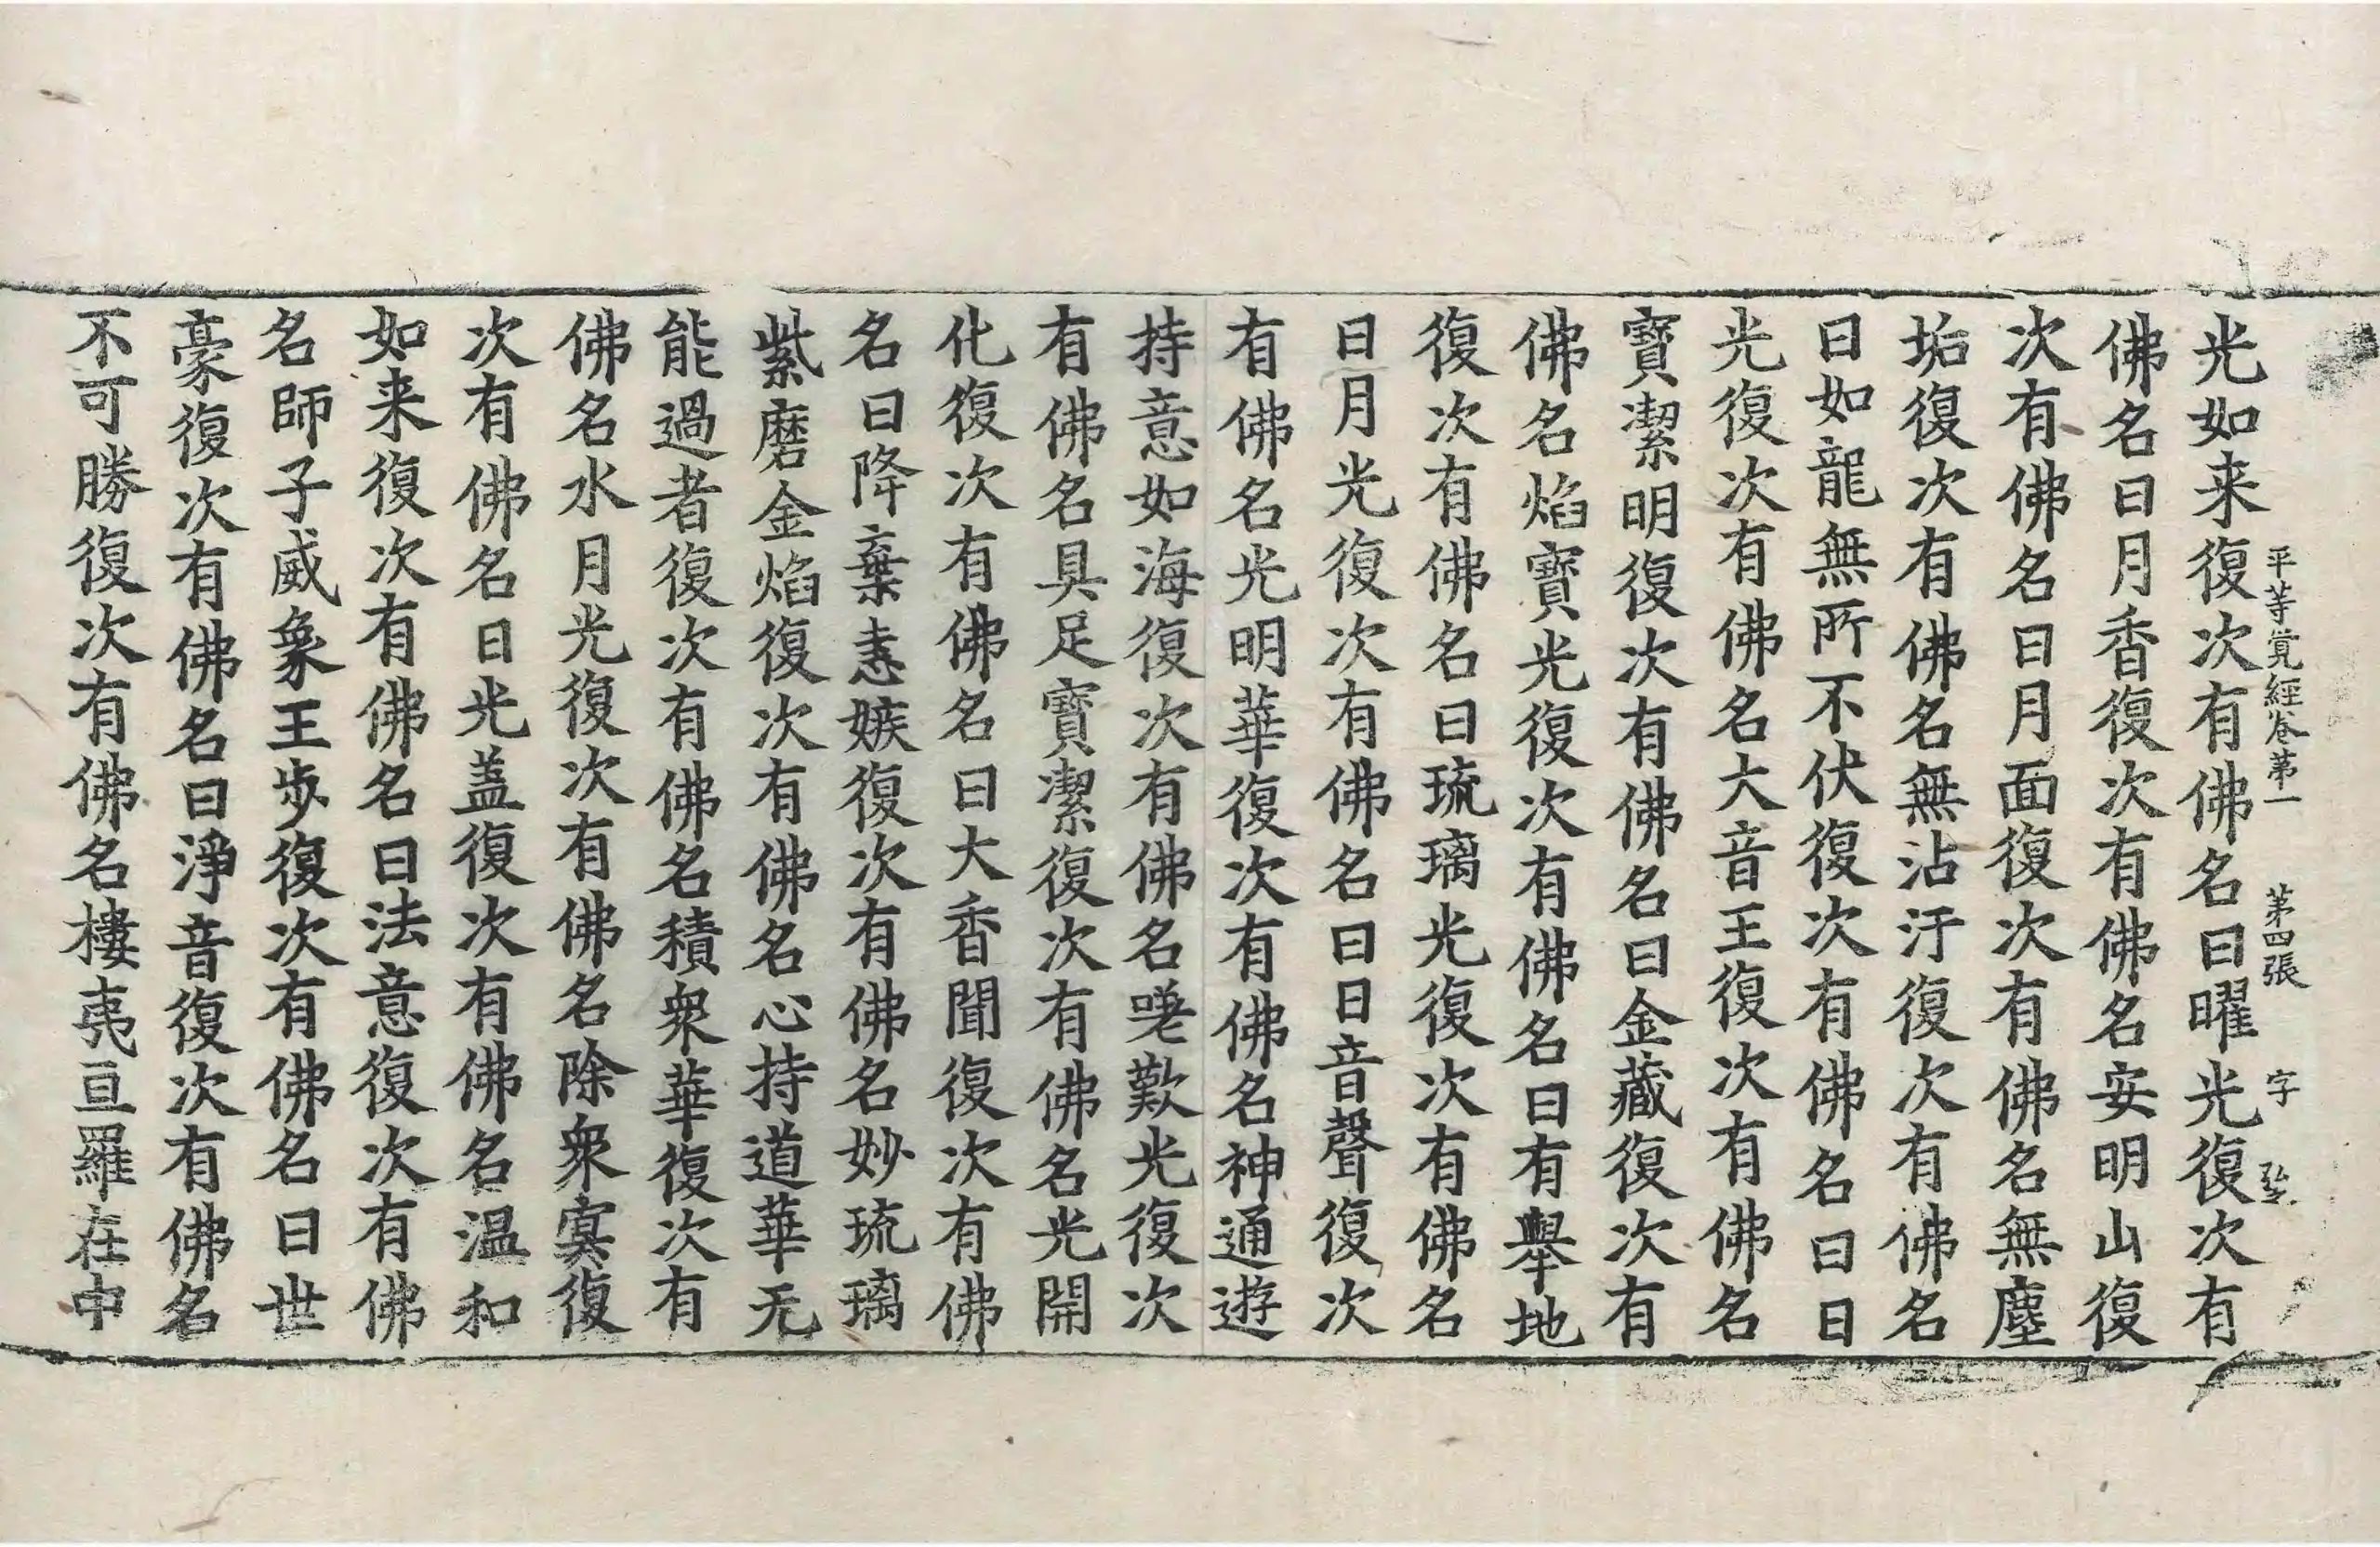 平等覺經卷第一　第四張　字号
光如来復次有佛名曰曜光復次有
佛名曰月香復次有佛名安明山復
次有佛名曰月面復次有佛名無塵
垢復次有佛名無沾汙復次有佛名
曰如龍無所不伏復次有佛名曰日
光復次有佛名大音王復次有佛名
寶潔明復次有佛名曰金藏復次有
佛名焰寶光復次有佛名曰有舉地
復次有佛名曰琉璃光復次有佛名
日月光復次有佛名曰日音聲復次
有佛名光明華復次有佛名神通遊
持意如海復次有佛名嗟歎光復次
有佛名具足寶潔復次有佛名光開
化復次有佛名曰大香聞復次有佛
名曰降棄恚嫉復次有佛名妙琉璃
紫磨金焰復次有佛名心持道華无
能過者復次有佛名積衆華復次有
佛名水月光復次有佛名除衆冥復
次有佛名日光盖復次有佛名温和
如来復次有佛名曰法意復次有佛
名師子威象王步復次有佛名曰世
豪復次有佛名曰淨音復次有佛名
不可勝復次有佛名樓夷亘羅在中